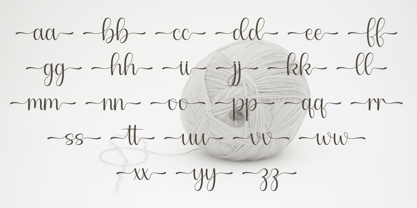 aa bb cc dd ee ff
gg hh ii jj kk ll
mm nn oo pp qq rr
ss tt uu vv ww
xx yy zz